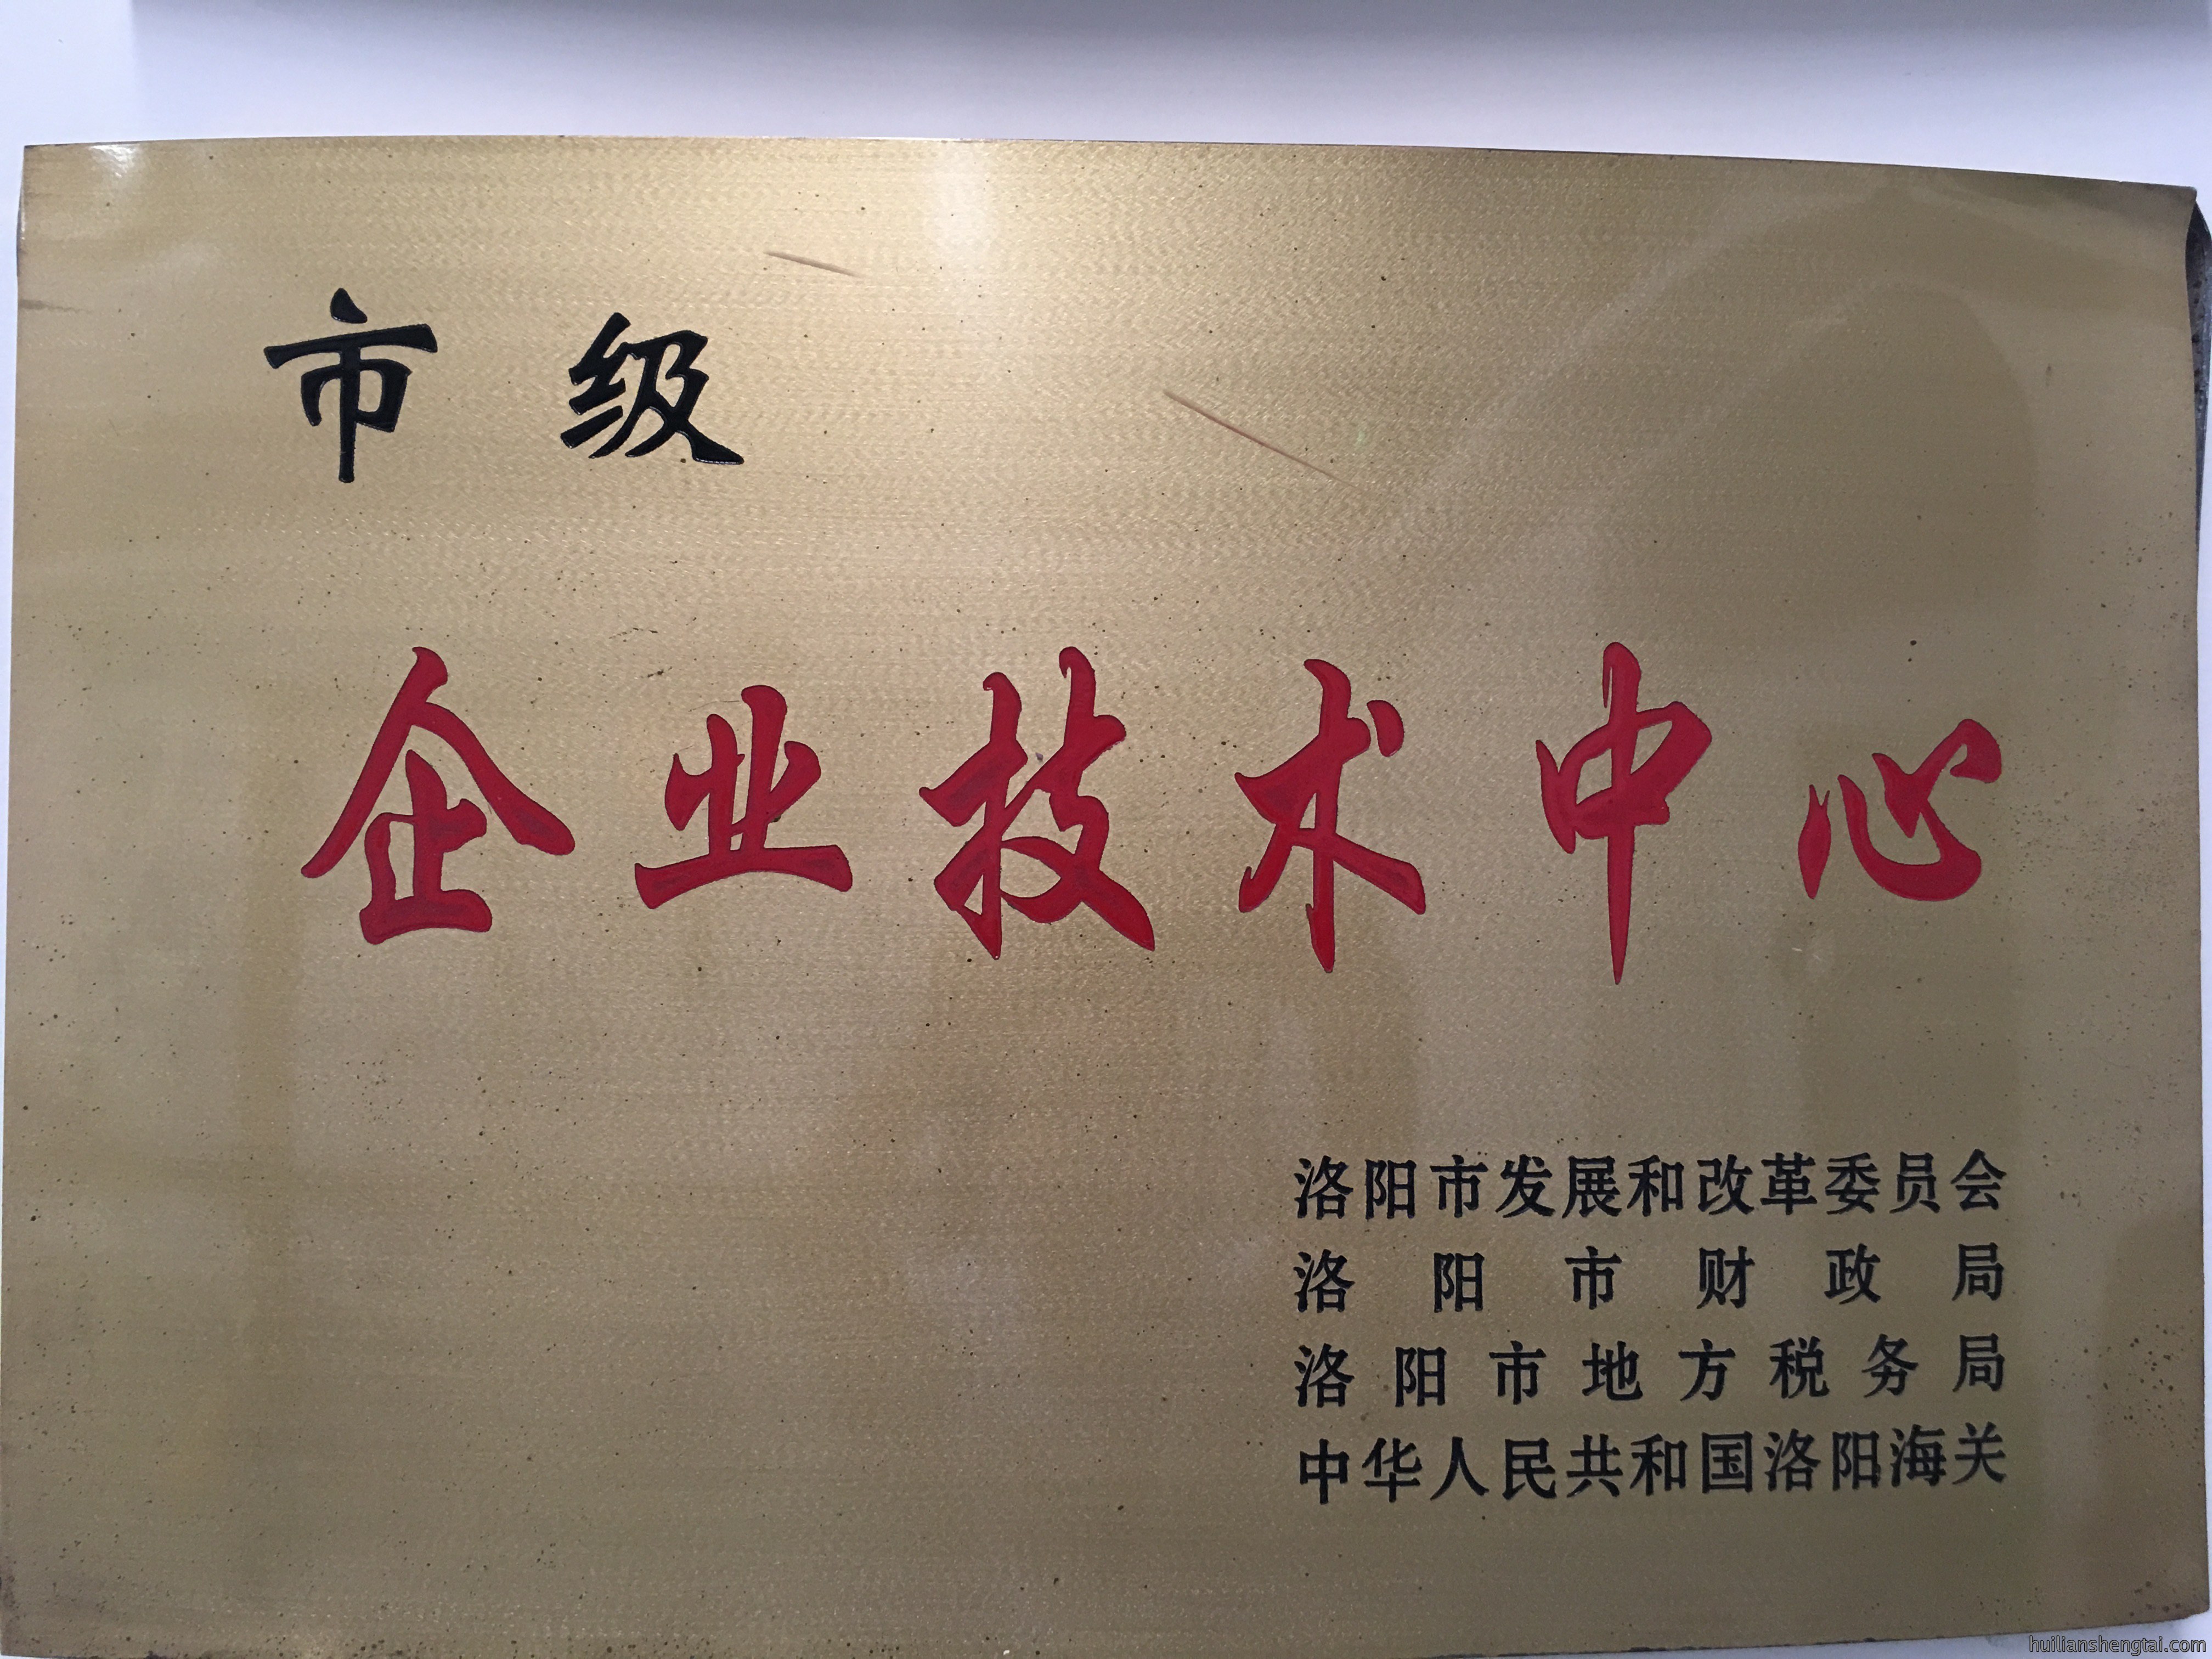 市级
企业技术中心
洛阳市发展和改革委员会
洛阳市财政局
洛阳市地方税务局
中华人民共和国洛阳海关
huilianshengtai.com